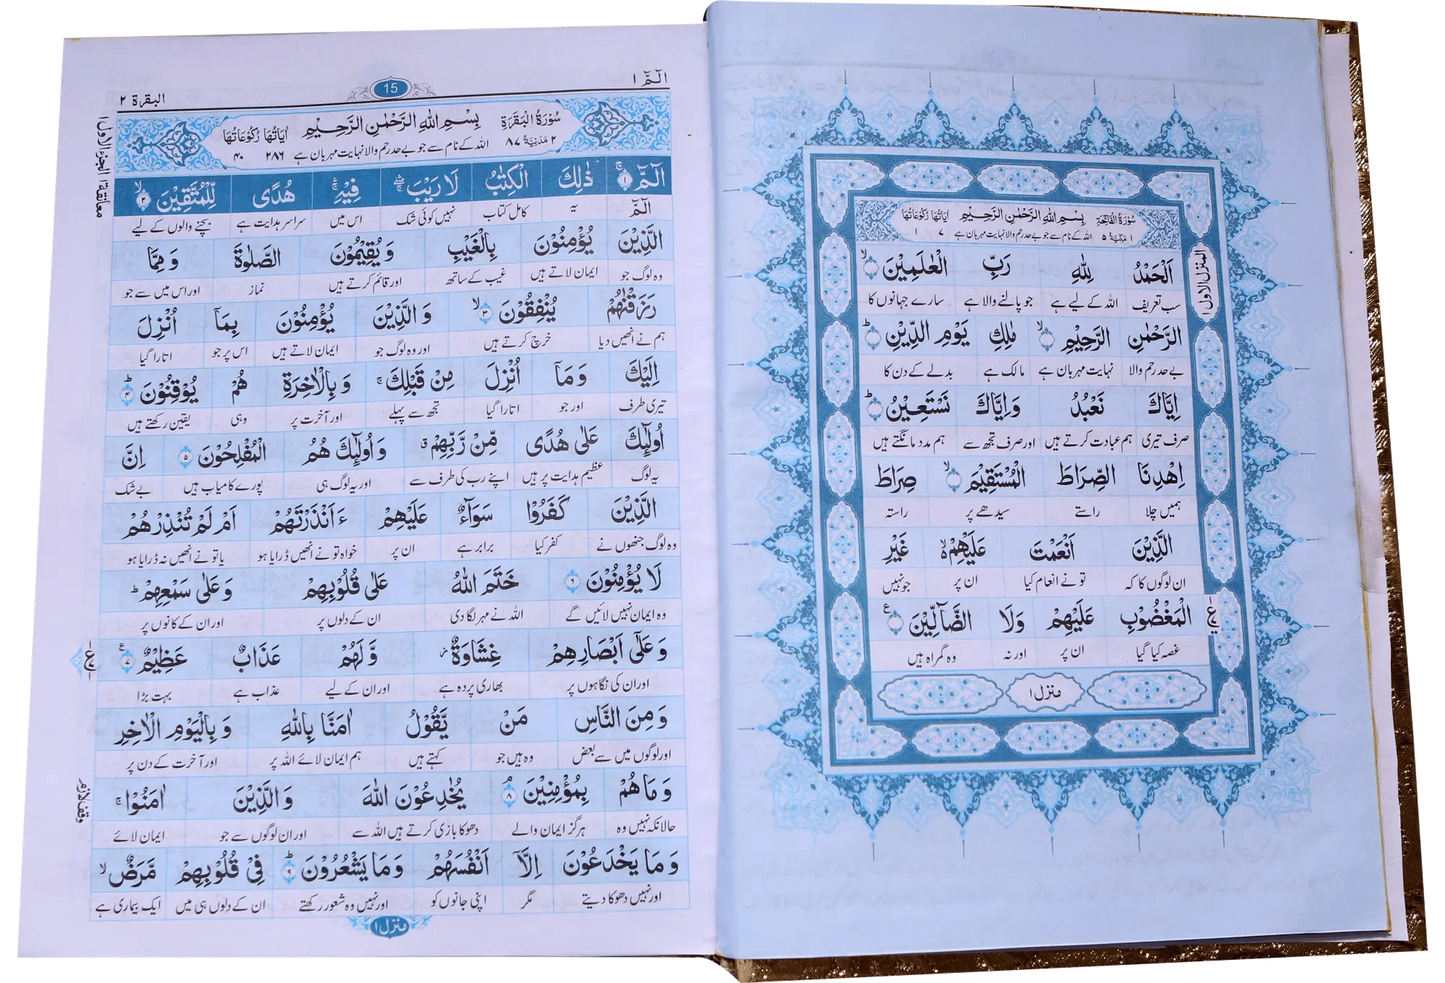 سُوْرَةُ الْفَاتِحَةِ بِسْمِ اللهِ الرَّحْمٰنِ الرَّحِيْمِ اٰيَاتُهَا رُكُوْعَاتُهَا
١ مَكِّيَّةٌ ٥ اللہ کے نام سے جو بے حد رحم والا نہایت مہربان ہے ٧ ١
اَلْحَمْدُ لِلّٰهِ رَبِّ الْعٰلَمِيْنَ ۙ
سب تعریف اللہ کے لیے ہے جو پالنے والا ہے سارے جہانوں کا
الرَّحْمٰنِ الرَّحِيْمِ ۙ مٰلِكِ يَوْمِ الدِّيْنِ ؕ
بے حد رحم والا نہایت مہربان ہے مالک ہے بدلے کے دن کا
اِيَّاكَ نَعْبُدُ وَاِيَّاكَ نَسْتَعِيْنُ ؕ
صرف تیری ہم عبادت کرتے ہیں اور صرف تجھ سے ہم مدد مانگتے ہیں
اِهْدِنَا الصِّرَاطَ الْمُسْتَقِيْمَ ۙ صِرَاطَ
ہمیں چلا راستے سیدھے پر راستہ
الَّذِيْنَ اَنْعَمْتَ عَلَيْهِمْ ۙ غَيْرِ
ان لوگوں کا کہ تو نے انعام کیا ان پر جو نہیں
الْمَغْضُوْبِ عَلَيْهِمْ وَلَا الضَّآلِّيْنَ
غصہ کیا گیا ان پر اور نہ وہ گمراہ ہیں
منزل ١
المنزل الاول ١
الٓمّٓ ١ 15 البقرة ٢
سُوْرَةُ الْبَقَرَةِ بِسْمِ اللهِ الرَّحْمٰنِ الرَّحِيْمِ اٰيَاتُهَا رُكُوْعَاتُهَا
٢ مَدَنِيَّةٌ ٨٧ اللہ کے نام سے جو بے حد رحم والا نہایت مہربان ہے ٢٨٦ ٤٠
الٓمّٓ ۚ ١ ذٰلِكَ الْكِتٰبُ لَا رَيْبَ ۛ فِيْهِ ۛ هُدًى لِّلْمُتَّقِيْنَ ۙ ٢
الٓمّٓ یہ کامل کتاب نہیں کوئی شک اس میں سراسر ہدایت ہے بچنے والوں کے لیے
الَّذِيْنَ يُؤْمِنُوْنَ بِالْغَيْبِ وَيُقِيْمُوْنَ الصَّلٰوةَ وَمِمَّا
وہ لوگ جو ایمان لاتے ہیں غیب کے ساتھ اور قائم کرتے ہیں نماز اور اس میں سے جو
رَزَقْنٰهُمْ يُنْفِقُوْنَ ۙ ٣ وَالَّذِيْنَ يُؤْمِنُوْنَ بِمَآ اُنْزِلَ
ہم نے انھیں دیا خرچ کرتے ہیں اور وہ لوگ جو ایمان لاتے ہیں اس پر جو اتارا گیا
اِلَيْكَ وَمَآ اُنْزِلَ مِنْ قَبْلِكَ ۚ وَبِالْاٰخِرَةِ هُمْ يُوْقِنُوْنَ ؕ ٤
تیری طرف اور جو اتارا گیا تجھ سے پہلے اور آخرت پر وہی یقین رکھتے ہیں
اُولٰٓئِكَ عَلٰى هُدًى مِّنْ رَّبِّهِمْ ۗ وَاُولٰٓئِكَ هُمُ الْمُفْلِحُوْنَ ٥ اِنَّ
یہ لوگ عظیم ہدایت پر ہیں اپنے رب کی طرف سے اور یہ لوگ ہی پورے کامیاب ہیں بے شک
الَّذِيْنَ كَفَرُوْا سَوَآءٌ عَلَيْهِمْ ءَاَنْذَرْتَهُمْ اَمْ لَمْ تُنْذِرْهُمْ
وہ لوگ جنھوں نے کفر کیا برابر ہے ان پر خواہ تو نے انھیں ڈرایا ہو یا تو نے انھیں نہ ڈرایا ہو
لَا يُؤْمِنُوْنَ ٦ خَتَمَ اللهُ عَلٰى قُلُوْبِهِمْ وَعَلٰى سَمْعِهِمْ ؕ
وہ ایمان نہیں لائیں گے اللہ نے مہر لگا دی ان کے دلوں پر اور ان کے کانوں پر
وَعَلٰٓى اَبْصَارِهِمْ غِشَاوَةٌ وَّلَهُمْ عَذَابٌ عَظِيْمٌ ٧
اور ان کی نگاہوں پر بھاری پردہ ہے اور ان کے لیے عذاب ہے بہت بڑا
وَمِنَ النَّاسِ مَنْ يَّقُوْلُ اٰمَنَّا بِاللهِ وَبِالْيَوْمِ الْاٰخِرِ
اور لوگوں میں سے بعض وہ ہیں جو کہتے ہیں ہم ایمان لائے اللہ پر اور آخرت کے دن پر
وَمَا هُمْ بِمُؤْمِنِيْنَ ۘ ٨ يُخٰدِعُوْنَ اللهَ وَالَّذِيْنَ اٰمَنُوْا ۚ
حالانکہ نہیں وہ ہرگز ایمان والے دھوکا بازی کرتے ہیں اللہ سے اور ان لوگوں سے جو ایمان لائے
وَمَا يَخْدَعُوْنَ اِلَّآ اَنْفُسَهُمْ وَمَا يَشْعُرُوْنَ ؕ ٩ فِيْ قُلُوْبِهِمْ مَّرَضٌ ۙ
اور نہیں دھوکا دیتے مگر اپنی جانوں کو اور نہیں وہ شعور رکھتے ان کے دلوں ہی میں ایک بیماری ہے
منزل ١
معانقة ١ الجزء الاول ١
وقف لازم